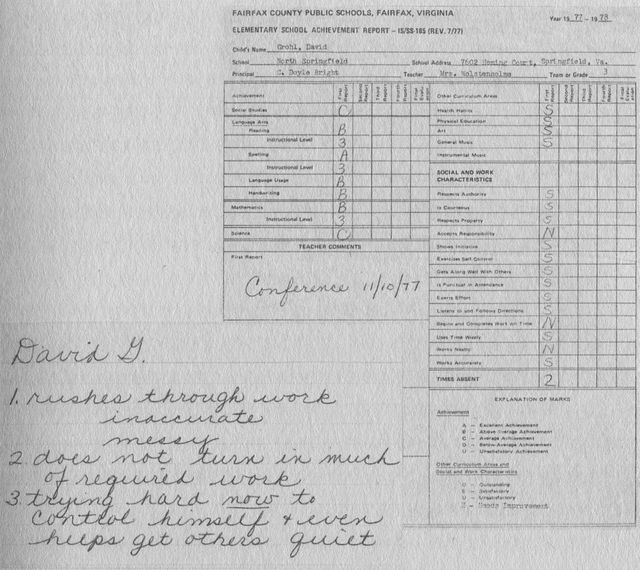 FAIRFAX COUNTY PUBLIC SCHOOLS, FAIRFAX, VIRGINIA
Year 1977 - 1978
ELEMENTARY SCHOOL ACHIEVEMENT REPORT - IS/SS-185 (REV. 7/77)
Child's Name Grohl, David
School North Springfield School Address 7602 Heming Court, Springfield, Va.
Principal C. Doyle Bright Teacher Mrs. Wolstenholme Team or Grade 3
Achievement First Report Second Report Third Report Fourth Report Final Evaluation
Social Studies C
Language Arts
Reading B
Instructional Level 3
Spelling A
Instructional Level 3
Language Usage B
Handwriting B
Mathematics B
Instructional Level 3
Science C
TEACHER COMMENTS
First Report
Conference 11/10/77
Other Curriculum Areas First Report Second Report Third Report Fourth Report Final Evaluation
Health Habits S
Physical Education S
Art S
General Music S
Instrumental Music
SOCIAL AND WORK
CHARACTERISTICS
Respects Authority S
Is Courteous S
Respects Property S
Accepts Responsibility N
Shows Initiative S
Exercises Self Control S
Gets Along Well With Others S
Is Punctual in Attendance S
Exerts Effort S
Listens to and Follows Directions S
Begins and Completes Work on Time N
Uses Time Wisely S
Works Neatly N
Works Accurately S
TIMES ABSENT 2
EXPLANATION OF MARKS
Achievement
A - Excellent Achievement
B - Above Average Achievement
C - Average Achievement
D - Below Average Achievement
U - Unsatisfactory Achievement
Other Curriculum Areas and
Social and Work Characteristics
O - Outstanding
S - Satisfactory
U - Unsatisfactory
N - Needs Improvement
David G.
1. rushes through work
inaccurate
messy
2. does not turn in much
of required work
3. trying hard now to
control himself & even
helps get others quiet